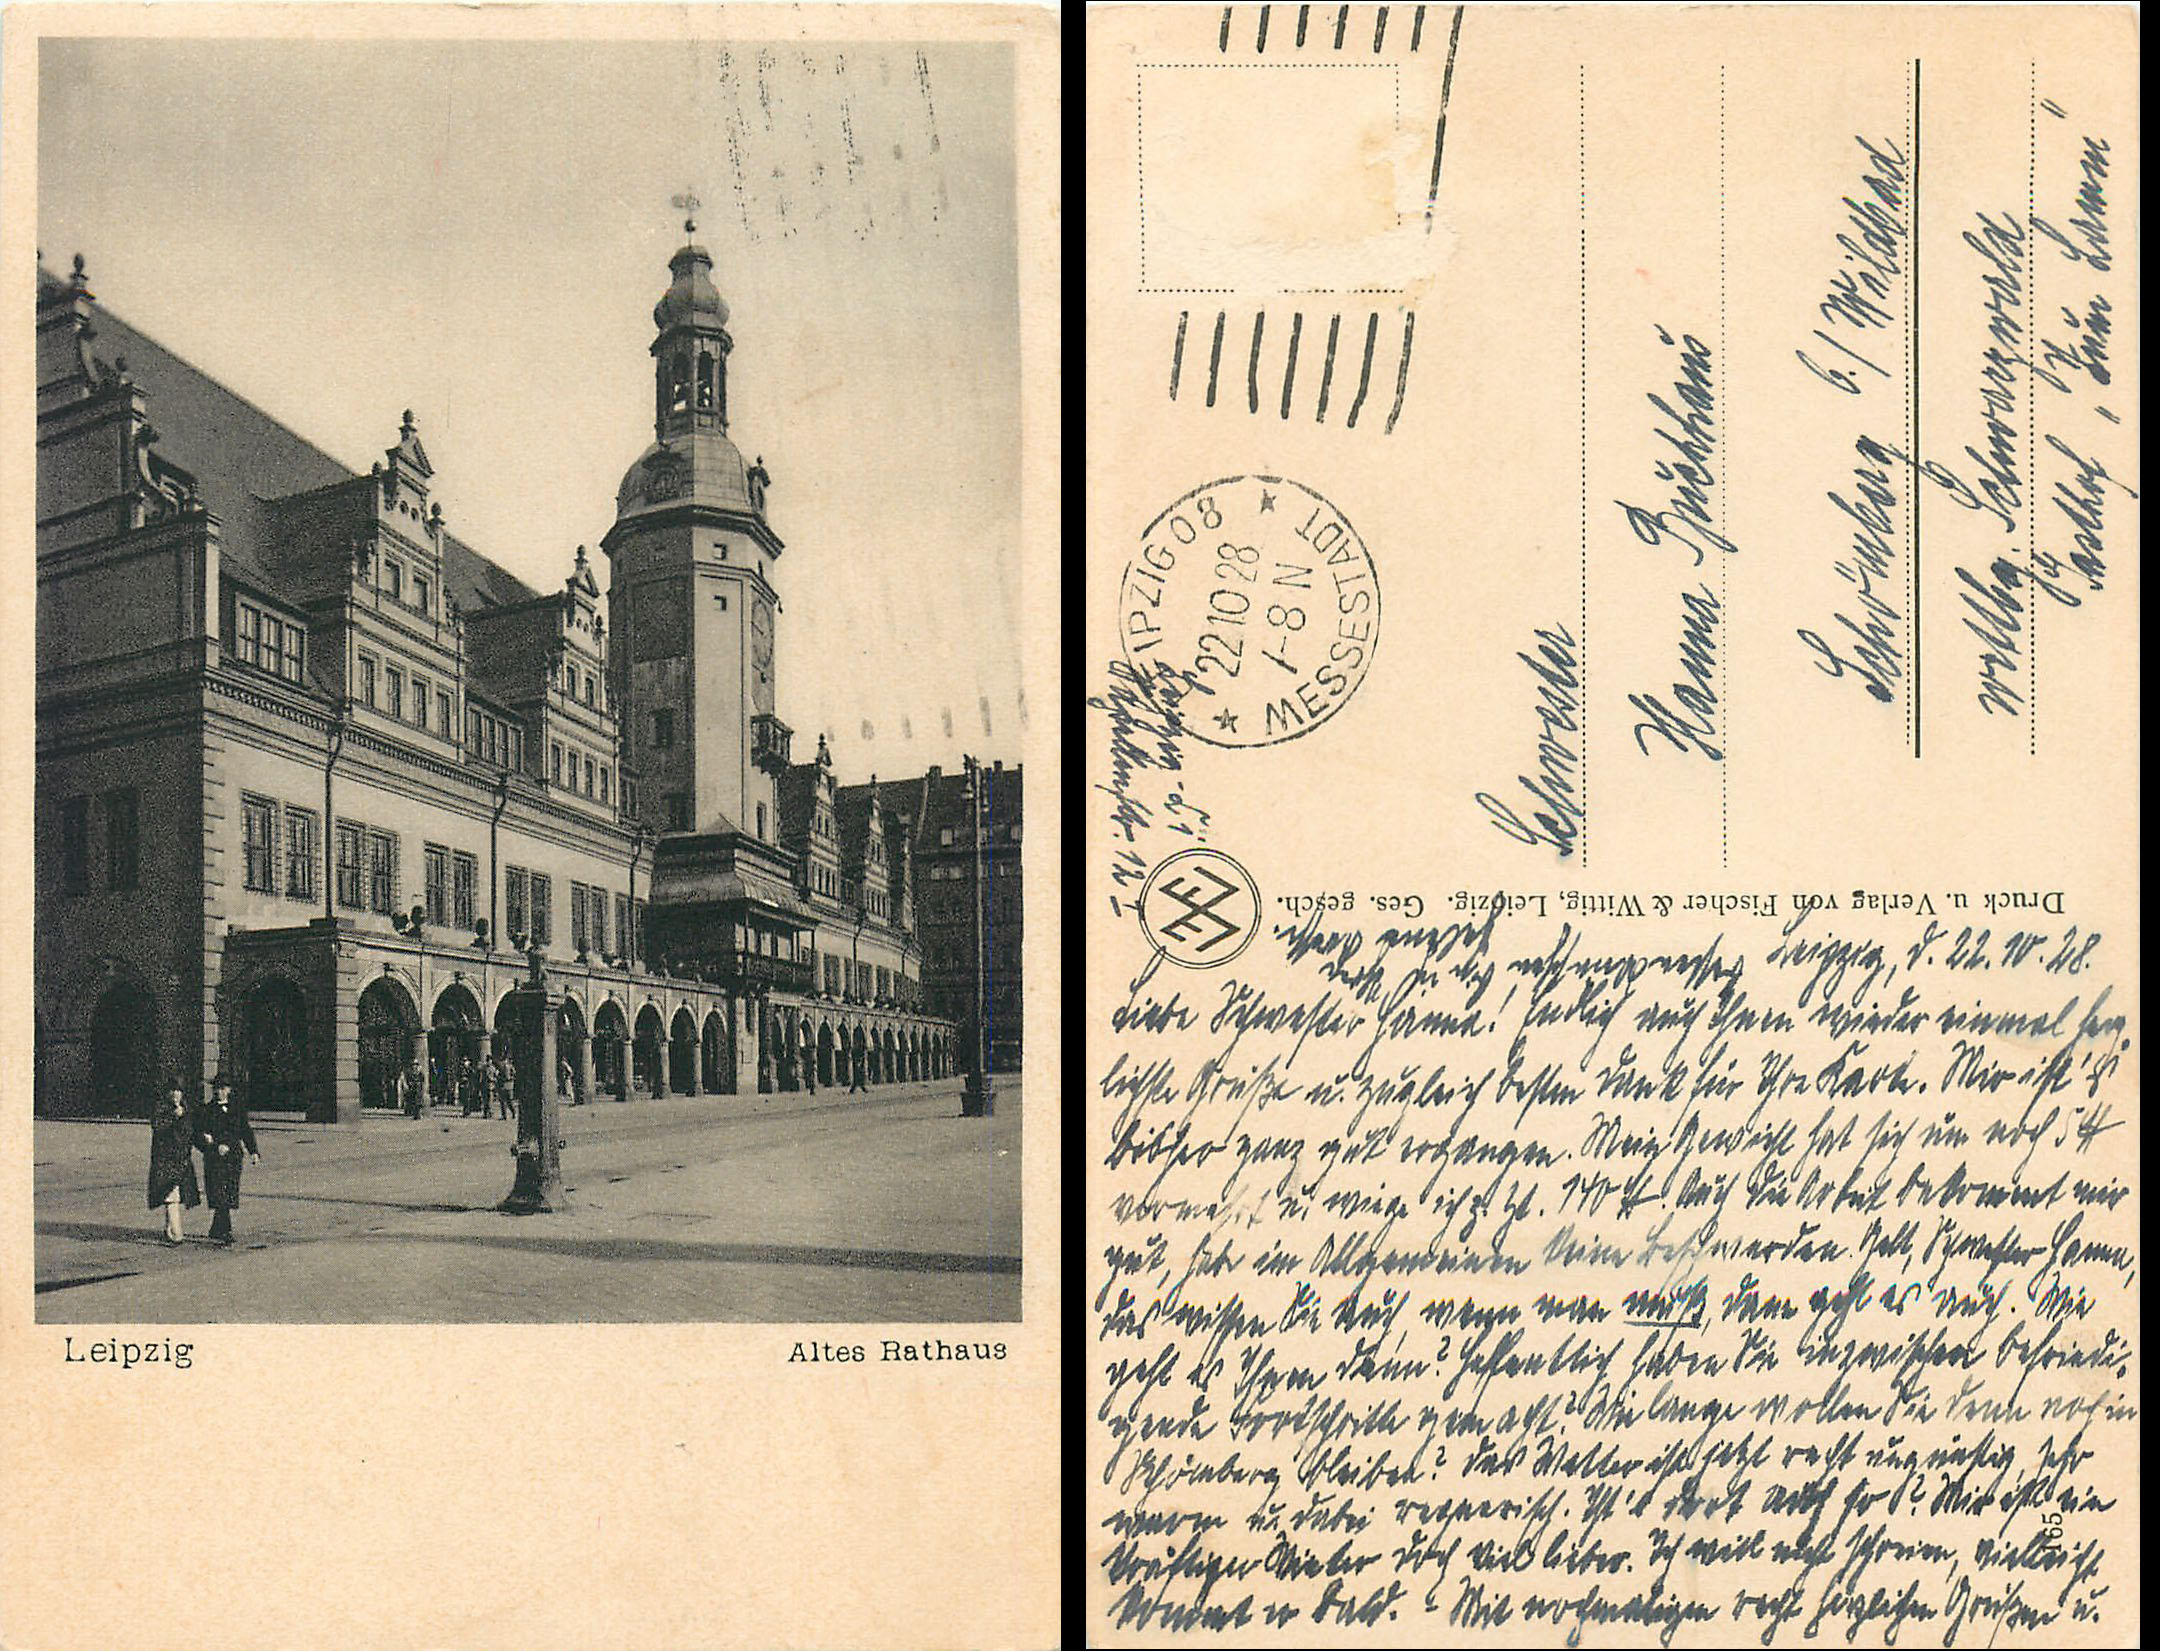 Leipzig
Altes Rathaus
LEIPZIG 08
22 10 28
7-8 N
MESSESTADT
Schwester
Hanna Bruckhaus
Schömberg b./ Wildbad
wrttbg. Schwarzwald
Gasthof „Zum Lamm"
Druck u. Verlag von Fischer & Wittig, Leipzig. Ges. gesch.
Leipzig, d. 22. 10. 28.
Liebe Schwester Hanna! Endlich auch Ihnen wieder einmal herz-
lichste Grüße u. zugleich besten Dank für Ihre Karte. Mir ist's
bisher ganz gut ergangen. Mein Gewicht hat sich um noch 5 ℔
vermehrt u. wiege ich z. Zt. 140 ℔. Auch die Arbeit bekommt mir
gut, habe im Allgemeinen keine Beschwerden. Gelt, Schwester Hanna,
das wissen Sie auch, wenn man muß, dann geht es auch. Wie
geht es Ihnen denn? Hoffentlich haben Sie inzwischen befriedi-
gende Fortschritte gemacht? Wie lange wollen Sie denn noch in
Schömberg bleiben? Das Wetter ist jetzt recht ungünstig, sehr
warm u. dabei regnerisch. Ist's dort auch so? Mir ist ein
kräftiger Winter doch viel lieber. Ich will nicht schreien, vielleicht
kommt er bald. - Mit nochmaligen recht herzlichen Grüßen u.
165